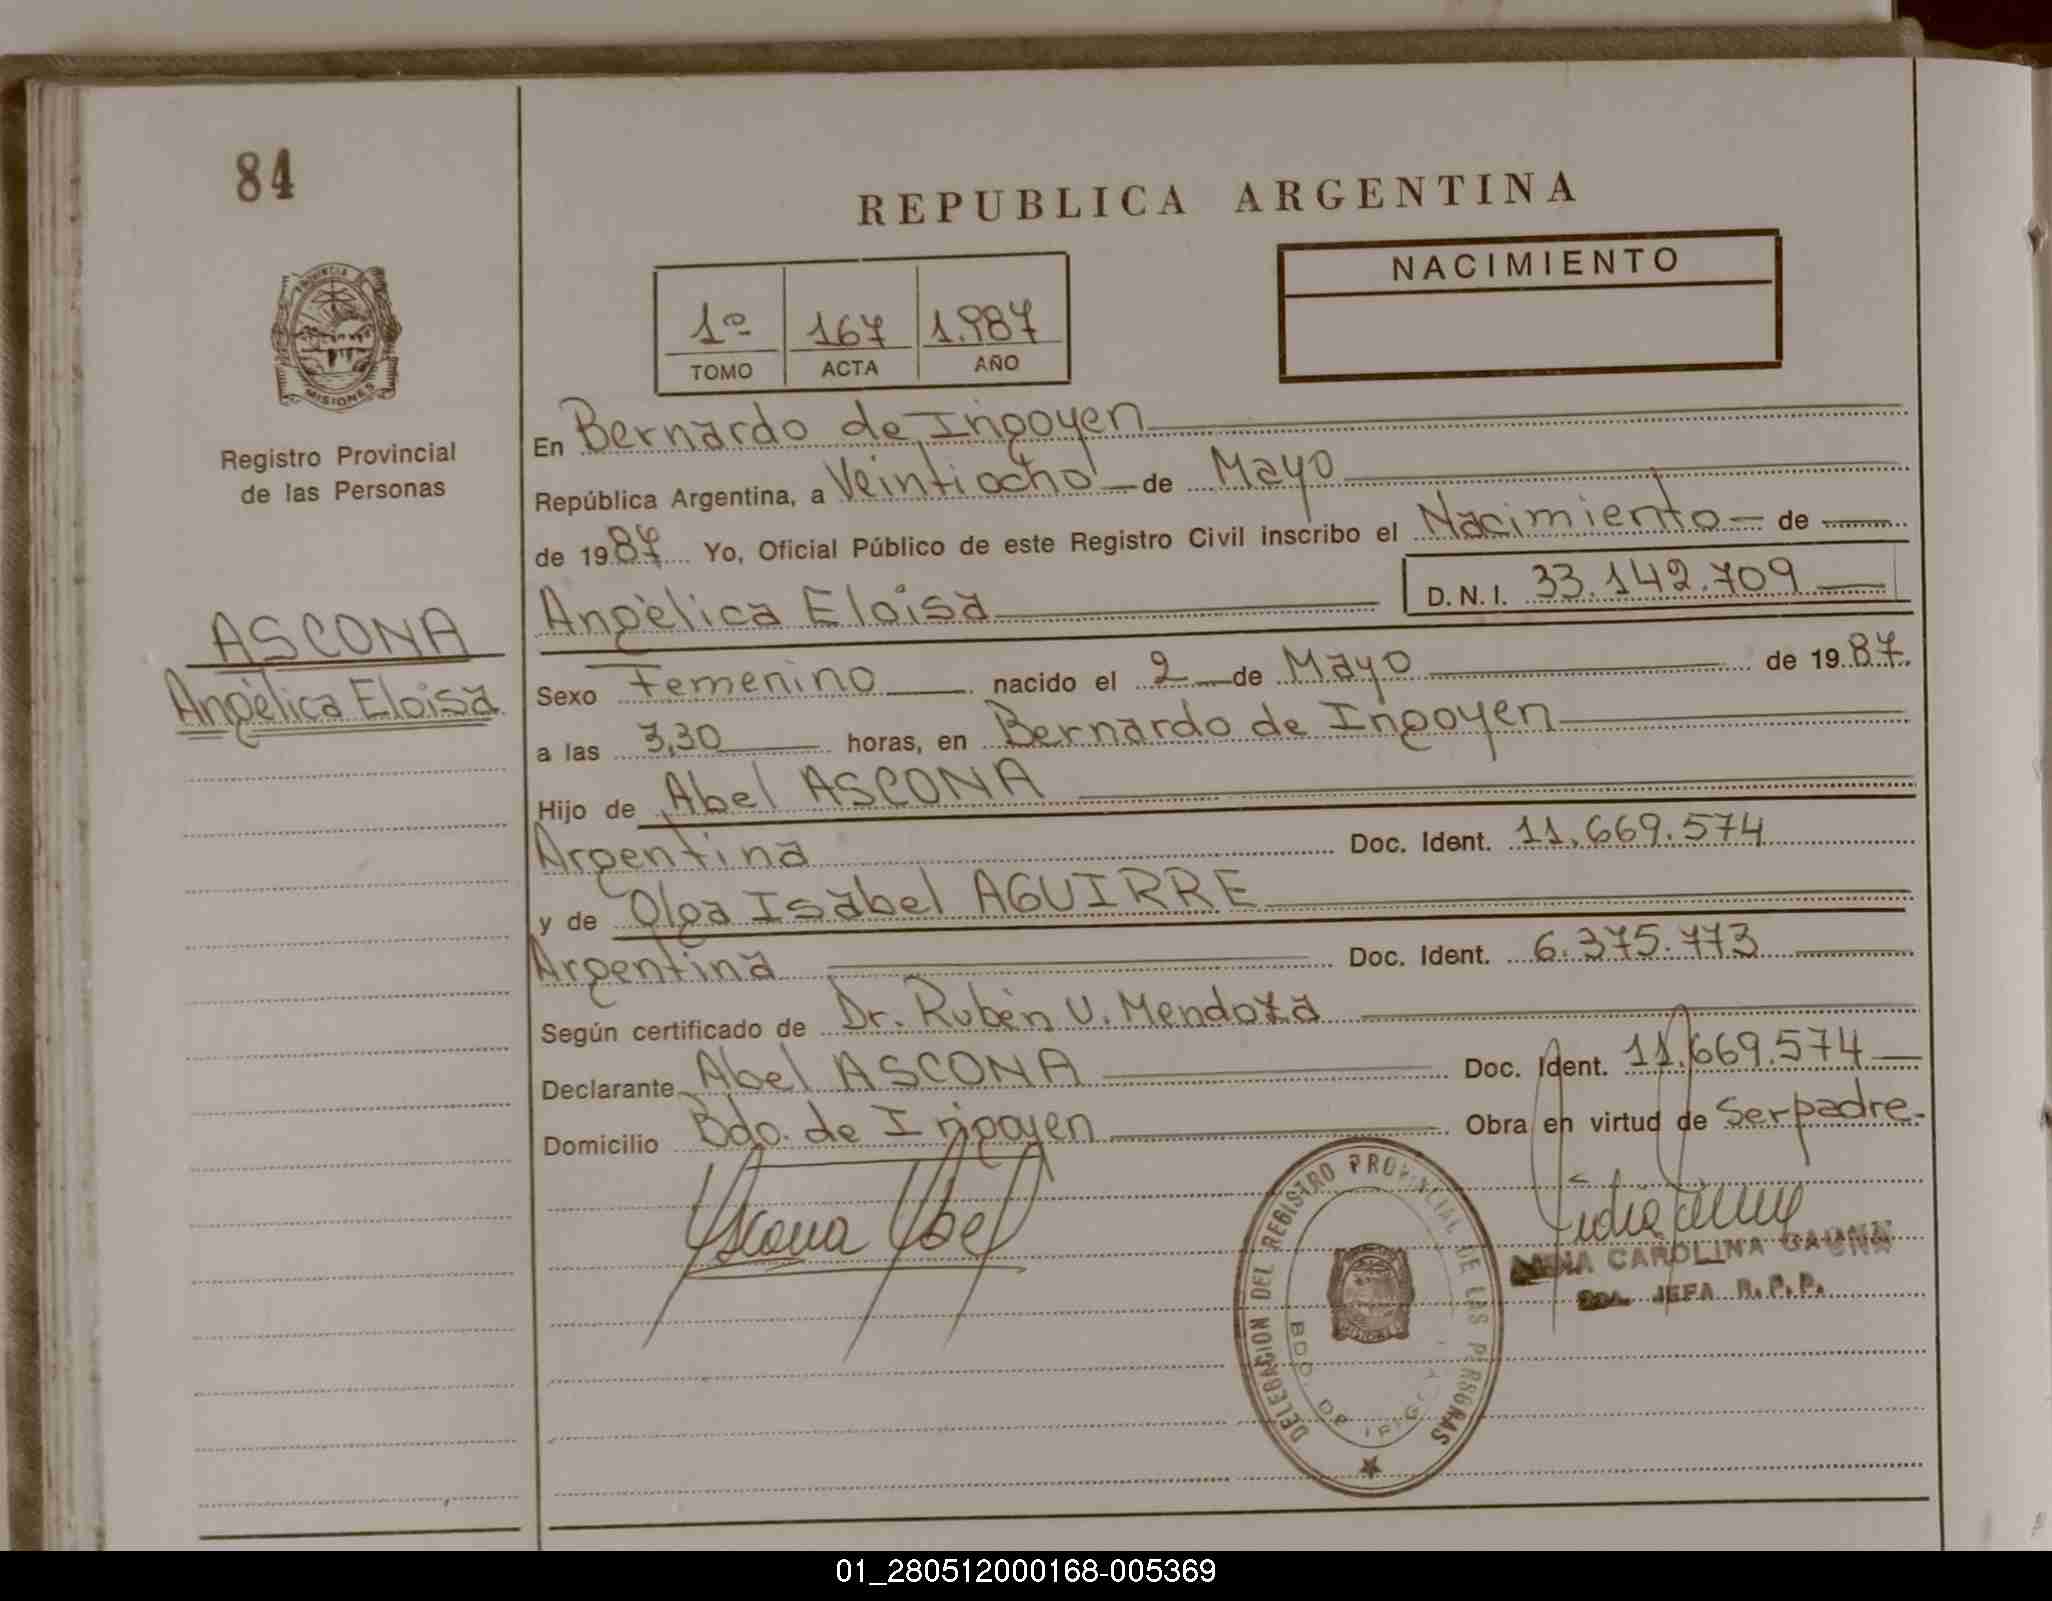 84
REPUBLICA ARGENTINA
PROVINCIA DE
MISIONES
Registro Provincial
de las Personas
1º 167 1.987
TOMO ACTA AÑO
NACIMIENTO
En Bernardo de Irigoyen
República Argentina, a Veintiocho de Mayo
de 1987 Yo, Oficial Público de este Registro Civil inscribo el Nacimiento de
Angélica Eloisa D.N.I. 33.142.709
ASCONA
Angélica Eloisa
Sexo Femenino nacido el 2 de Mayo de 1987.
a las 3,30 horas, en Bernardo de Irigoyen
Hijo de Abel ASCONA
Argentina Doc. Ident. 11.669.574
y de Olga Isabel AGUIRRE
Argentina Doc. Ident. 6.375.773
Según certificado de Dr. Rubén U. Mendoza
Declarante Abel ASCONA Doc. Ident. 11.669.574
Domicilio Bdo. de Irigoyen Obra en virtud de Ser padre.
Ascona Abel
CAROLINA GAUNA
JEFA R.P.P.
DELEGACION DEL REGISTRO PROVINCIAL DE LAS PERSONAS
BDO. DE
MISIONES
01_280512000168-005369